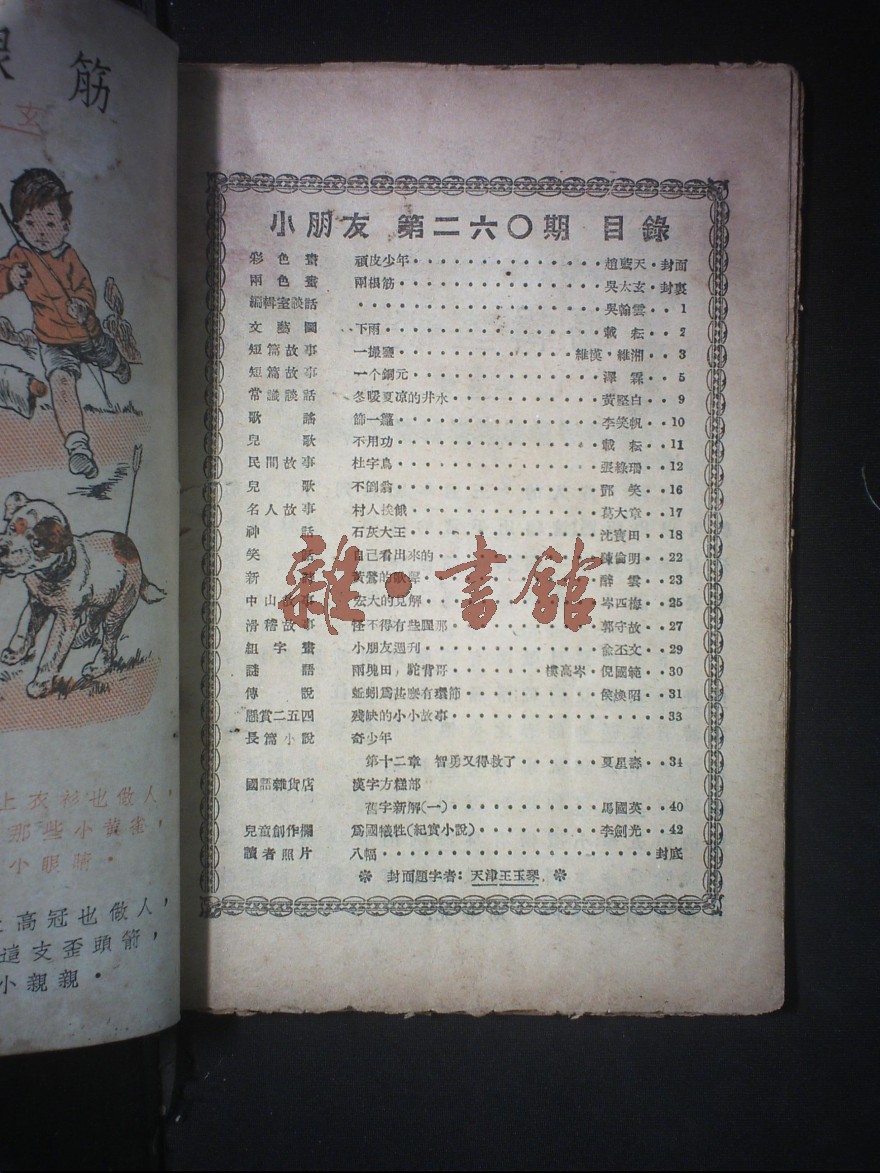 筋
玄
上衣衫也做人，
那些小黄雀，
小眼睛。
上高冠也做人，
這支歪頭箭，
小親親。
小朋友 第二六〇期 目錄
彩色畫 頑皮少年 趙藍天·封面
兩色畫 兩根筋 吳太玄·封裏
編輯室談話 吳翰雲 1
文藝圖 下雨 載耘 2
短篇故事 一撮鹽 維漢·維湘 3
短篇故事 一个銅元 澤霖 5
常識談話 冬暖夏凉的井水 黃堅白 9
歌謠 節一籮 李笑帆 10
兒歌 不用功 載耘 11
民間故事 杜字鳥 張綠珊 12
兒歌 不倒翁 鄧笑 16
名人故事 村人挨餓 葛大章 17
神話 石灰大王 沈寶田 18
笑話 自己看出來的 陳倫明 22
新詩 黃鶯的歌聲 醉雲 23
中山故事 宏大的見解 岑西梅 25
滑稽故事 怪不得有些腥那 郭守故 27
組字畫 小朋友週刊 俞丕文 29
謎語 兩塊田，駝背哥 樓高岑·倪國範 30
傳說 蚯蚓爲甚麽有環節 侯煥昭 31
懸賞二五四 殘缺的小小故事 33
長篇小說 奇少年
第十二章 智勇又得救了 夏星壽 34
國語雜貨店 漢字方糕部
舊字新解(一) 馬國英 40
兒童創作欄 爲國犧牲(紀實小說) 李劍光 42
讀者照片 八幅 封底
封面題字者：天津王玉琴
雜·書館